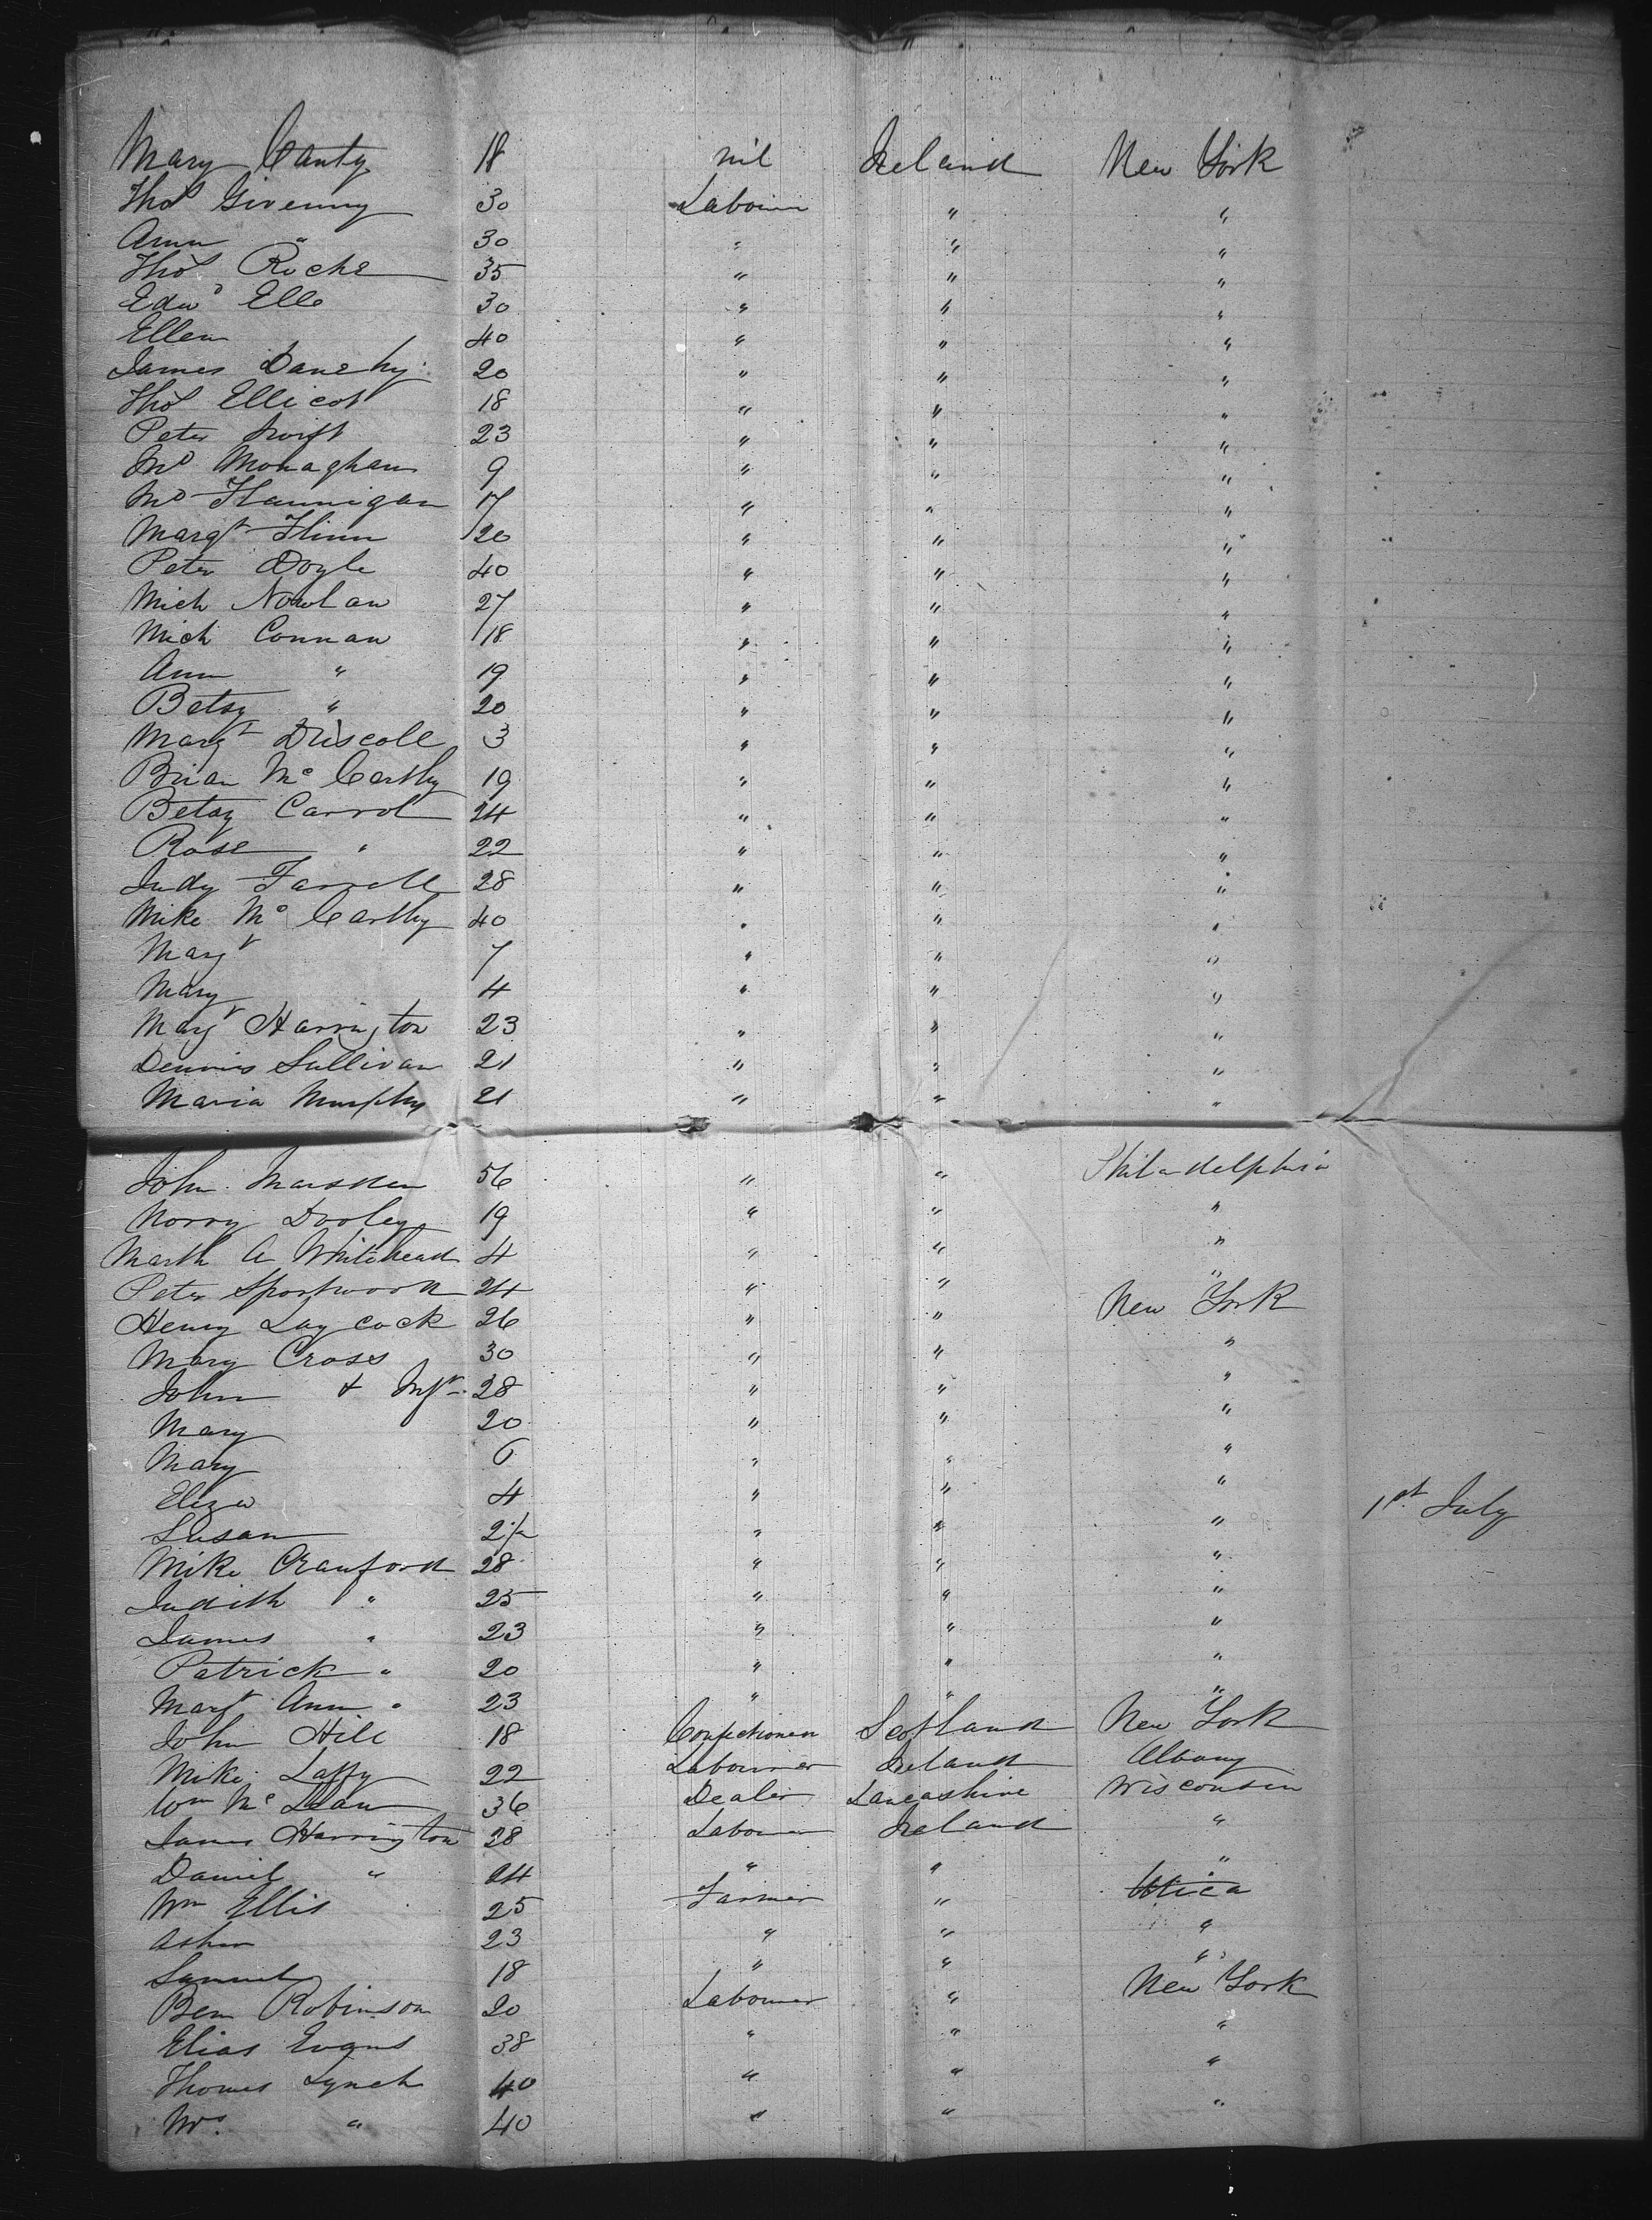 Mary Canty 18 nil Ireland New York
Thos Givenny 30 Labourer " "
Ann " 30 " " "
Thos Roche 35 " " "
Edwd Elle 30 " " "
Ellen 40 " " "
James Danehy 20 " " "
Thos Ellicot 18 " " "
Peter Swift 23 " " "
Md Monaghan 9 " " "
Md Flannigan 17 " " "
Margt Flinn 20 " " "
Peter Doyle 40 " " "
Mich Nowlan 27 " " "
Mich Connan 18 " " "
Ann " 19 " " "
Betsy " 20 " " "
Margt Driscoll 3 " " "
Brian McCarthy 19 " " "
Betsy Carrol 24 " " "
Rose " 22 " " "
Judy Farrell 28 " " "
Mike McCarthy 40 " " "
Margt 7 " " "
Mary 4 " " "
Margt Harrington 23 " " "
Dennis Sullivan 21 " " "
Maria Murphy 21 " " "
John Marsden 56 " " Philadelphia
Norry Dooley 19 " " "
Marth A Whitehead 4 " " "
Peter Sportwood 24 " " "
Henry Laycock 26 " " New York
Mary Cross 30 " " "
John & Inft 28 " " "
Mary 20 " " "
Mary 6 " " "
Eliza 4 " " "
Susan 2½ " " " 1st July
Mike Cranford 28 " " "
Judith " 25 " " "
James " 23 " " "
Patrick " 20 " " "
Margt Ann " 23 " " "
John Hill 18 Confectioner Scotland New York
Mike Laffy 22 Labourer Ireland Albany
Wm McLean 36 Dealer Lancashire Wisconsin
James Harrington 28 Labourer Ireland "
Daniel " 24 " " "
Wm Ellis 25 Farmer " Utica
Ashm 23 " " "
Samuel 18 " " "
Ben Robinson 20 Labourer " New York
Elias Evans 38 " " "
Thomas Lynch 40 " " "
Mrs. " 40 " " "